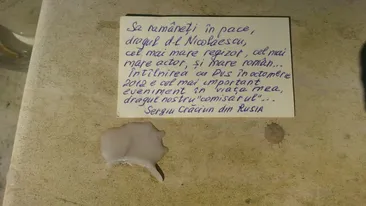 Sa rămâneți în pace,
dragul d-l Nicolaescu,
cel mai mare regizor, cel mai
mare actor, și mare român...
Întîlnirea cu Dvs în octombrie
2012 e cel mai important
eveniment în viața mea,
dragul nostru "comisarul"...
Sergiu Crăciun din RUSIA